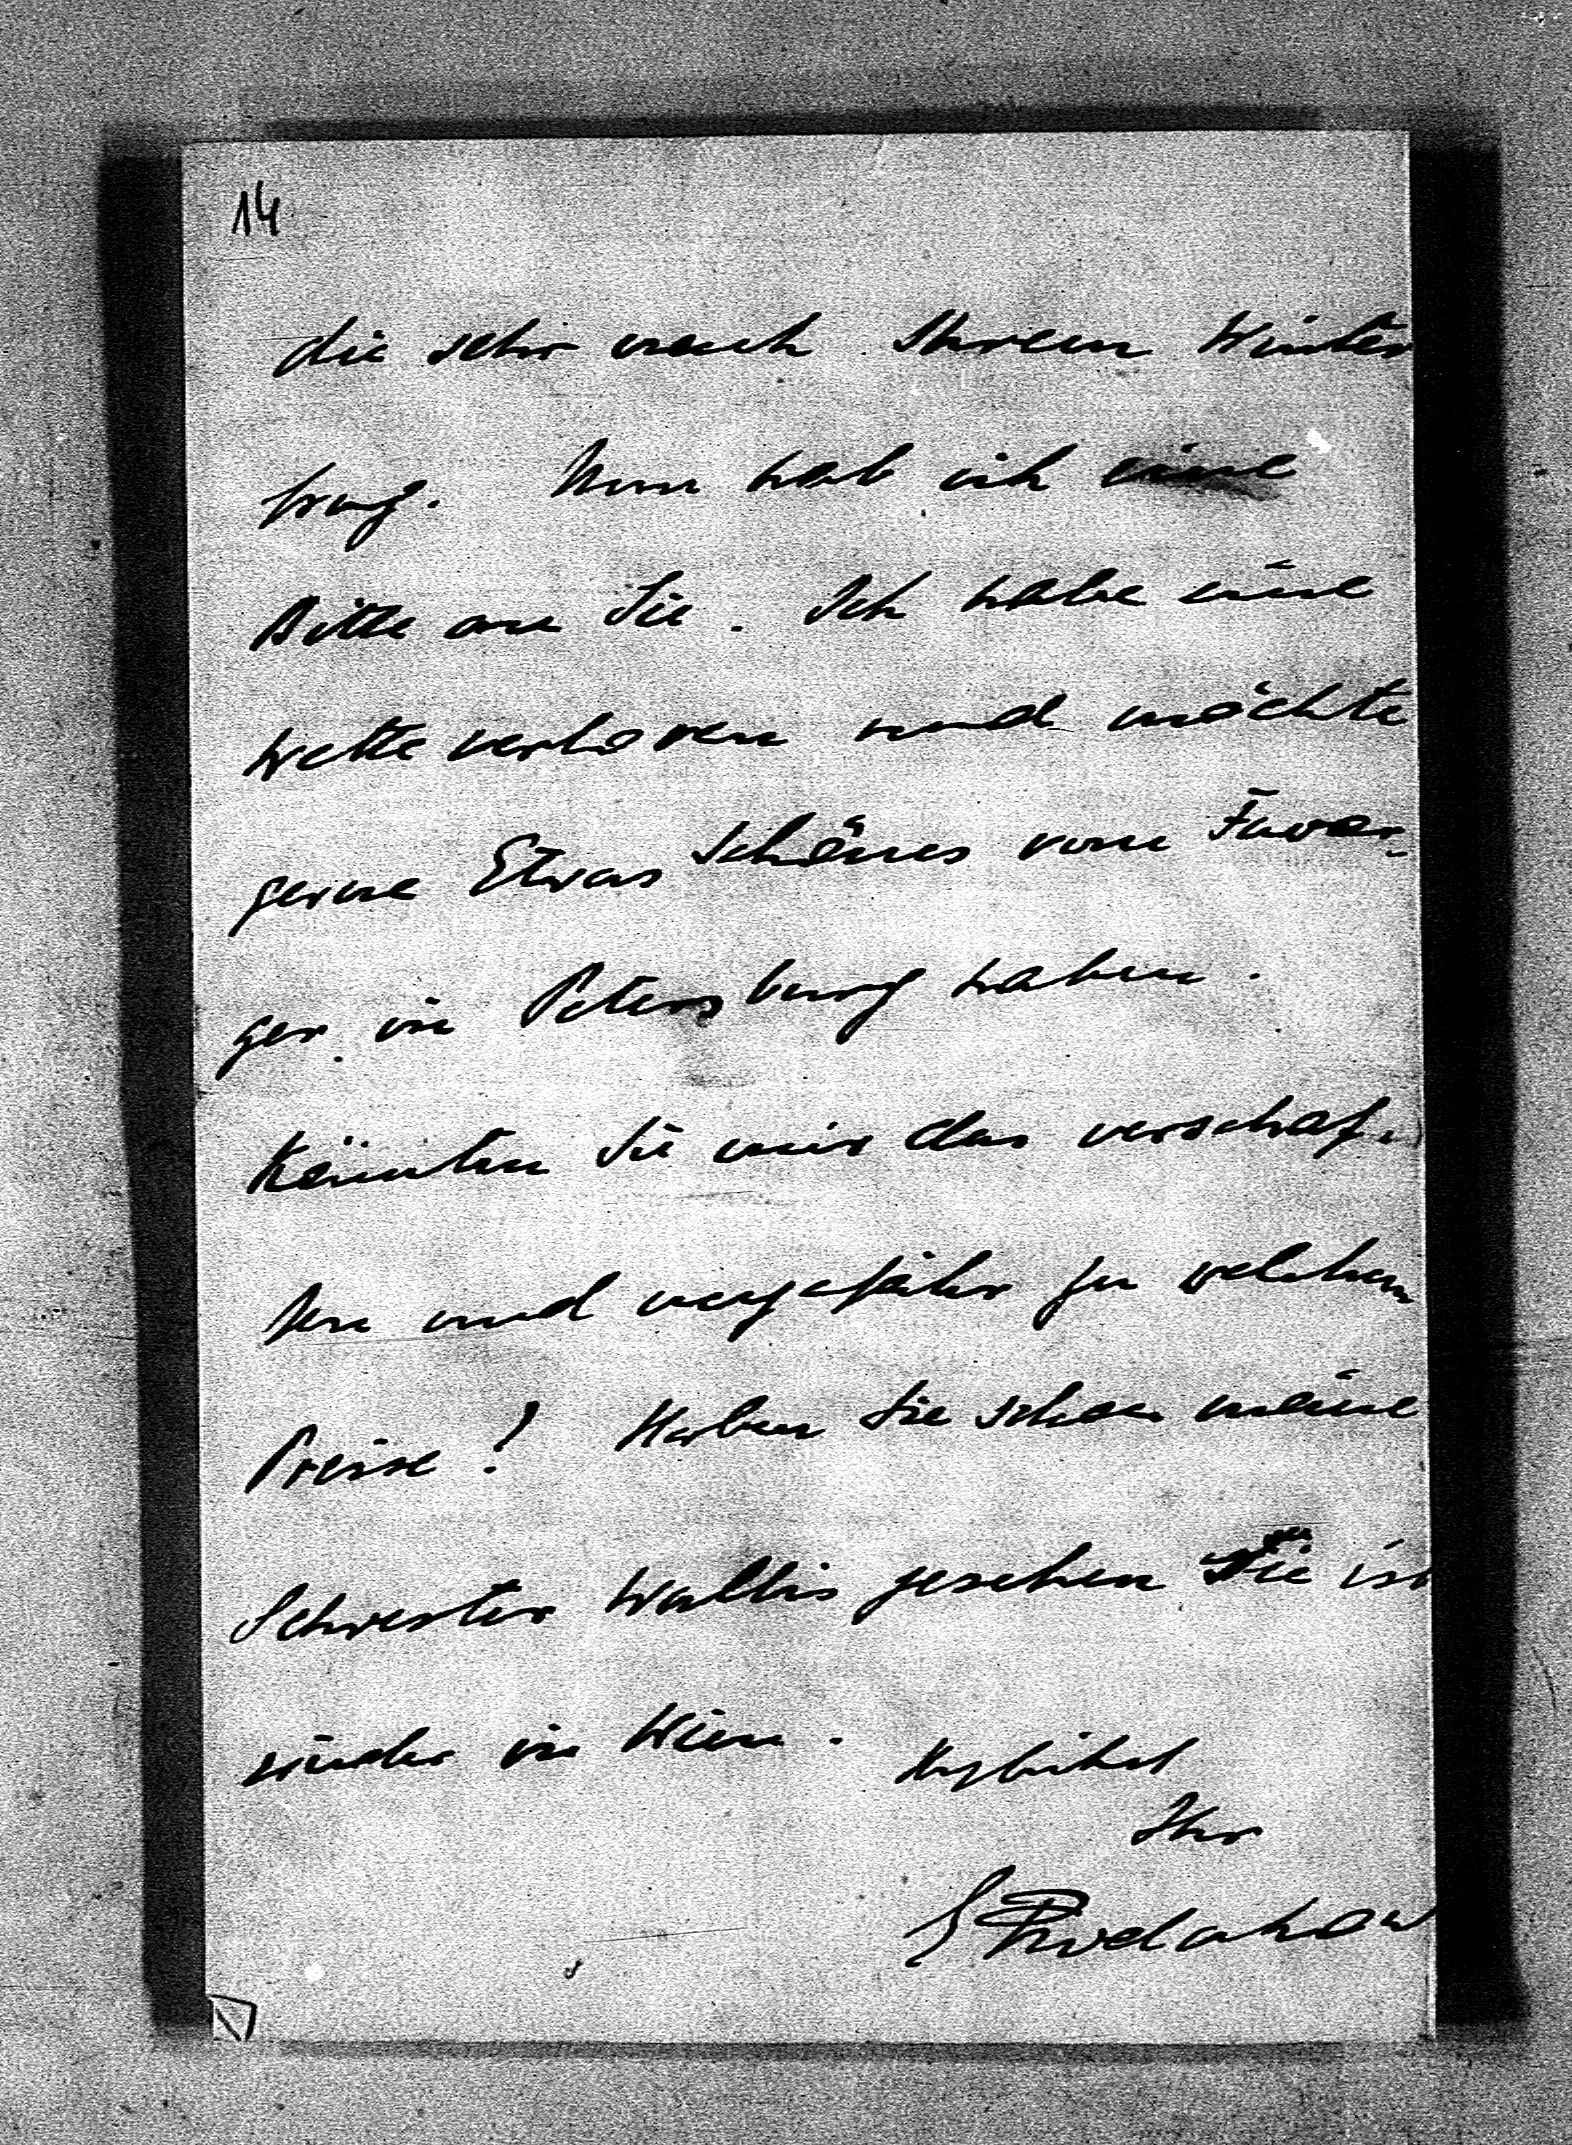 14
die sehr nach Ihrem Winter
frug. Nun hab ich eine
Bitte an Sie. Ich habe eine
Wette verloren und möchte
gerne Etwas Schönes vom Faver-
ger in Petersburg haben.
Könnten Sie mir das verschaf-
fen und ungefähr zu welchem
Preise? Haben Sie schon meine
Schwester gesehen Sie ist
wieder in Wien.
Ihr